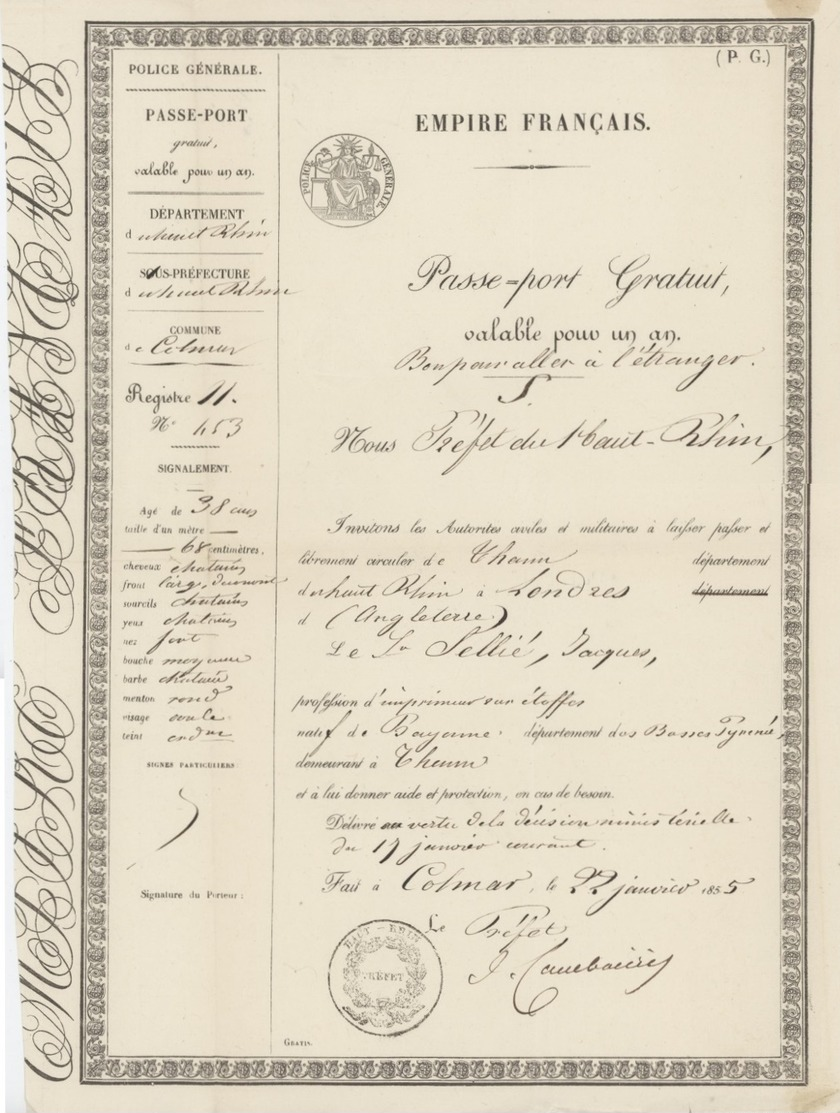 POLICE GÉNÉRALE.
PASSE-PORT
gratuit,
valable pour un an.
DÉPARTEMENT
d u haut Rhin
SOUS-PRÉFECTURE
d u haut Rhin
COMMUNE
de Colmar
Registre 11.
N° 453
SIGNALEMENT.
Agé de 38 ans
taille d'un mètre
68 centimètres,
cheveux chatains
front large, découvert
sourcils chatains
yeux chatains
nez fort
bouche moyenne
barbe chataine
menton rond
visage ovale
teint
SIGNES PARTICULIERS
Signature du Porteur :
(P. G.)
EMPIRE FRANÇAIS.
POLICE GÉNÉRALE
Passe=port Gratuit,
valable pour un an.
Bon pour aller à l'étranger.
Nous Préfet du Haut-Rhin,
Invitons les Autorités civiles et militaires à laisser passer et
librement circuler de Thann département
du haut Rhin à Londres département
d (Angleterre)
Le Sr Sellié, Jacques,
profession d'imprimeur sur étoffes
natif de Bayonne département des Basses Pyrénées,
demeurant à Thann
et à lui donner aide et protection, en cas de besoin.
Délivré en vertu de la décision ministérielle
du 17 janvier courant.
Fait à Colmar, le 22 janvier 1855
Le Préfet
HAUT-RHIN
PRÉFET
GRATIS.